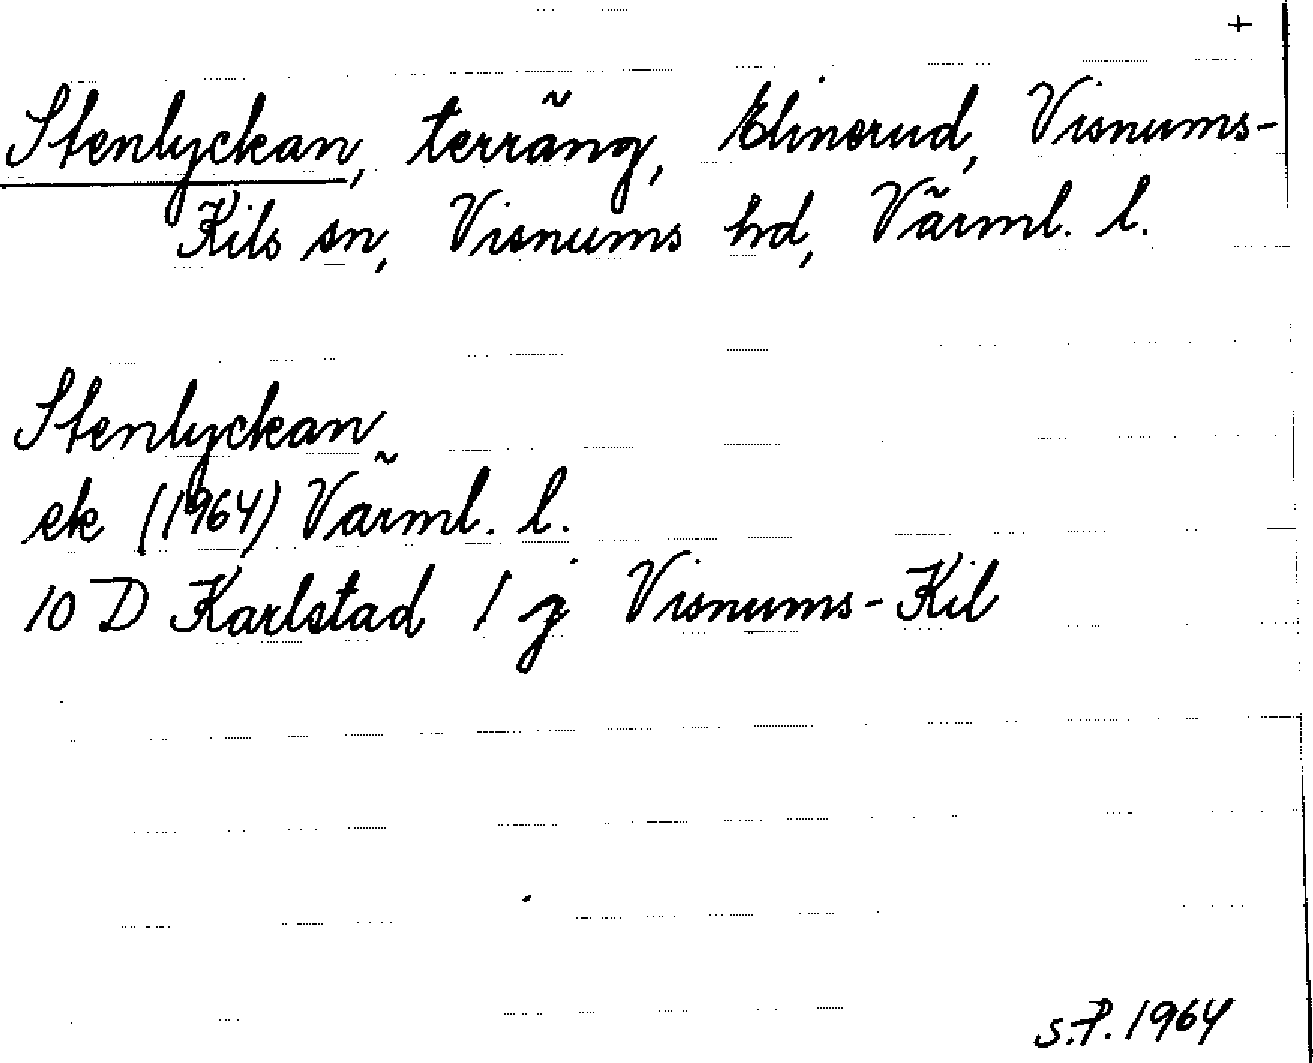 +
Stenlyckan, terräng, Elinerud, Visnums-
Kils sn, Visnums hd, Värml. l.
Stenlyckan
ek (1964) Värml. l.
10 D Karlstad 1 j Visnums-Kil
S.P. 1964